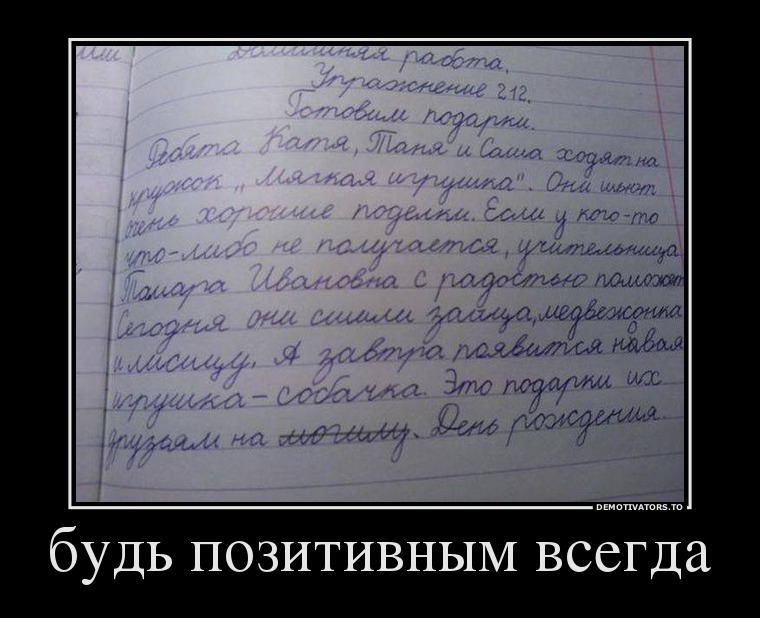 ими
Домашняя работа.
Упражнение 212.
Готовим подарки.
Ребята Катя, Таня и Саша ходят на
кружок „Мягкая игрушка". Они шьют
очень хорошие поделки. Если у кого-то
что-либо не получается, учительница
Тамара Ивановна с радостью поможет
Сегодня они сшили зайца, медвежонка
и лисицу. А завтра появится новая
игрушка – собачка. Это подарки их
друзьям на могилу. День рождения.
DEMOTIVATORS.TO
будь позитивным всегда